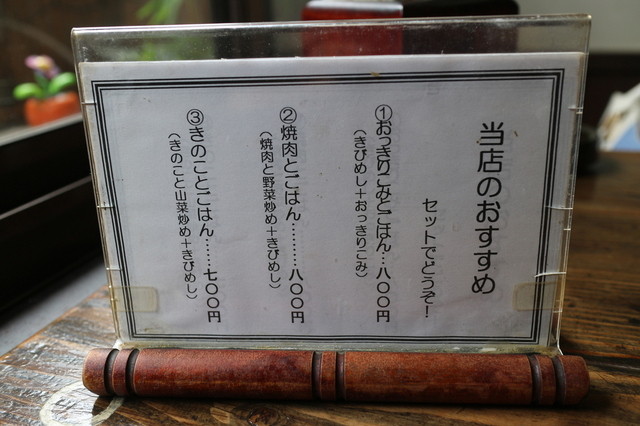 当店のおすすめ
セットでどうぞ！
①おっきりこみとごはん…八〇〇円
（きびめし＋おっきりこみ）
②焼肉とごはん………八〇〇円
（焼肉と野菜炒め＋きびめし）
③きのことごはん……七〇〇円
（きのこと山菜炒め＋きびめし）